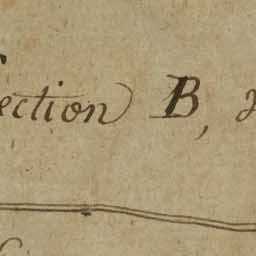 ection B,